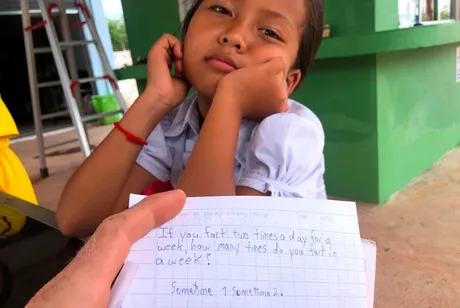 If you fart two times a day for a
week, how many times do you fart in
a week?
Sometime 1 sometime 2.